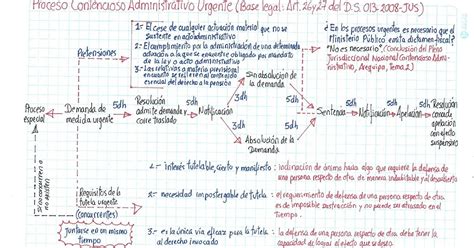 Proceso Contencioso Administrativo Urgente (Base legal: Art. 26 y 27 del D.S. 013-2008-JUS)
Pretensiones
1- El cese de cualquier actuación material que no se
sustente en acto administrativo
2- El cumplimiento por la administración de una determinada
actuación a la que se encuentre obligada por mandato
de la ley o acto administrativo
3- Las relativas a materia previsional
en cuanto se refieran al contenido
esencial del derecho a la pensión
¿En los procesos urgentes es necesario que el
Ministerio Público emita dictamen fiscal?
"No es necesario" (Conclusión del Pleno
Jurisdiccional Nacional Contencioso Admi-
nistrativo, Arequipa, Tema 2)
Proceso
especial
Demanda de
medida urgente
5dh
Resolución
admite demanda y
corre traslado
5dh
Notificación
3dh
Sin absolución de
la demanda
3dh
Absolución de la
Demanda
5dh
5dh
Sentencia
5dh
Notificación
5dh
Apelación
5dh
Resolución
concede
apelación
con efecto
suspensivo
Si no concurren o
no existen
Requisitos de la
tutela urgente
(concurrentes)
Juntarse en un mismo
tiempo
1.- interés tutelable, cierto y manifiesto: inclinación de ánimo hacia algo que requiere la defensa de
una persona respecto de otra, de manera indubitable y al descubierto
2.- necesidad impostergable de tutela: el requerimiento de defensa de una persona respecto de otra
es de imposible sustracción y no puede ser atrasada en el
tiempo.
3.- es la única vía eficaz para la tutela
al derecho invocado
: la defensa de una persona respecto de otra, debe tener la
capacidad de lograr el efecto que se desea